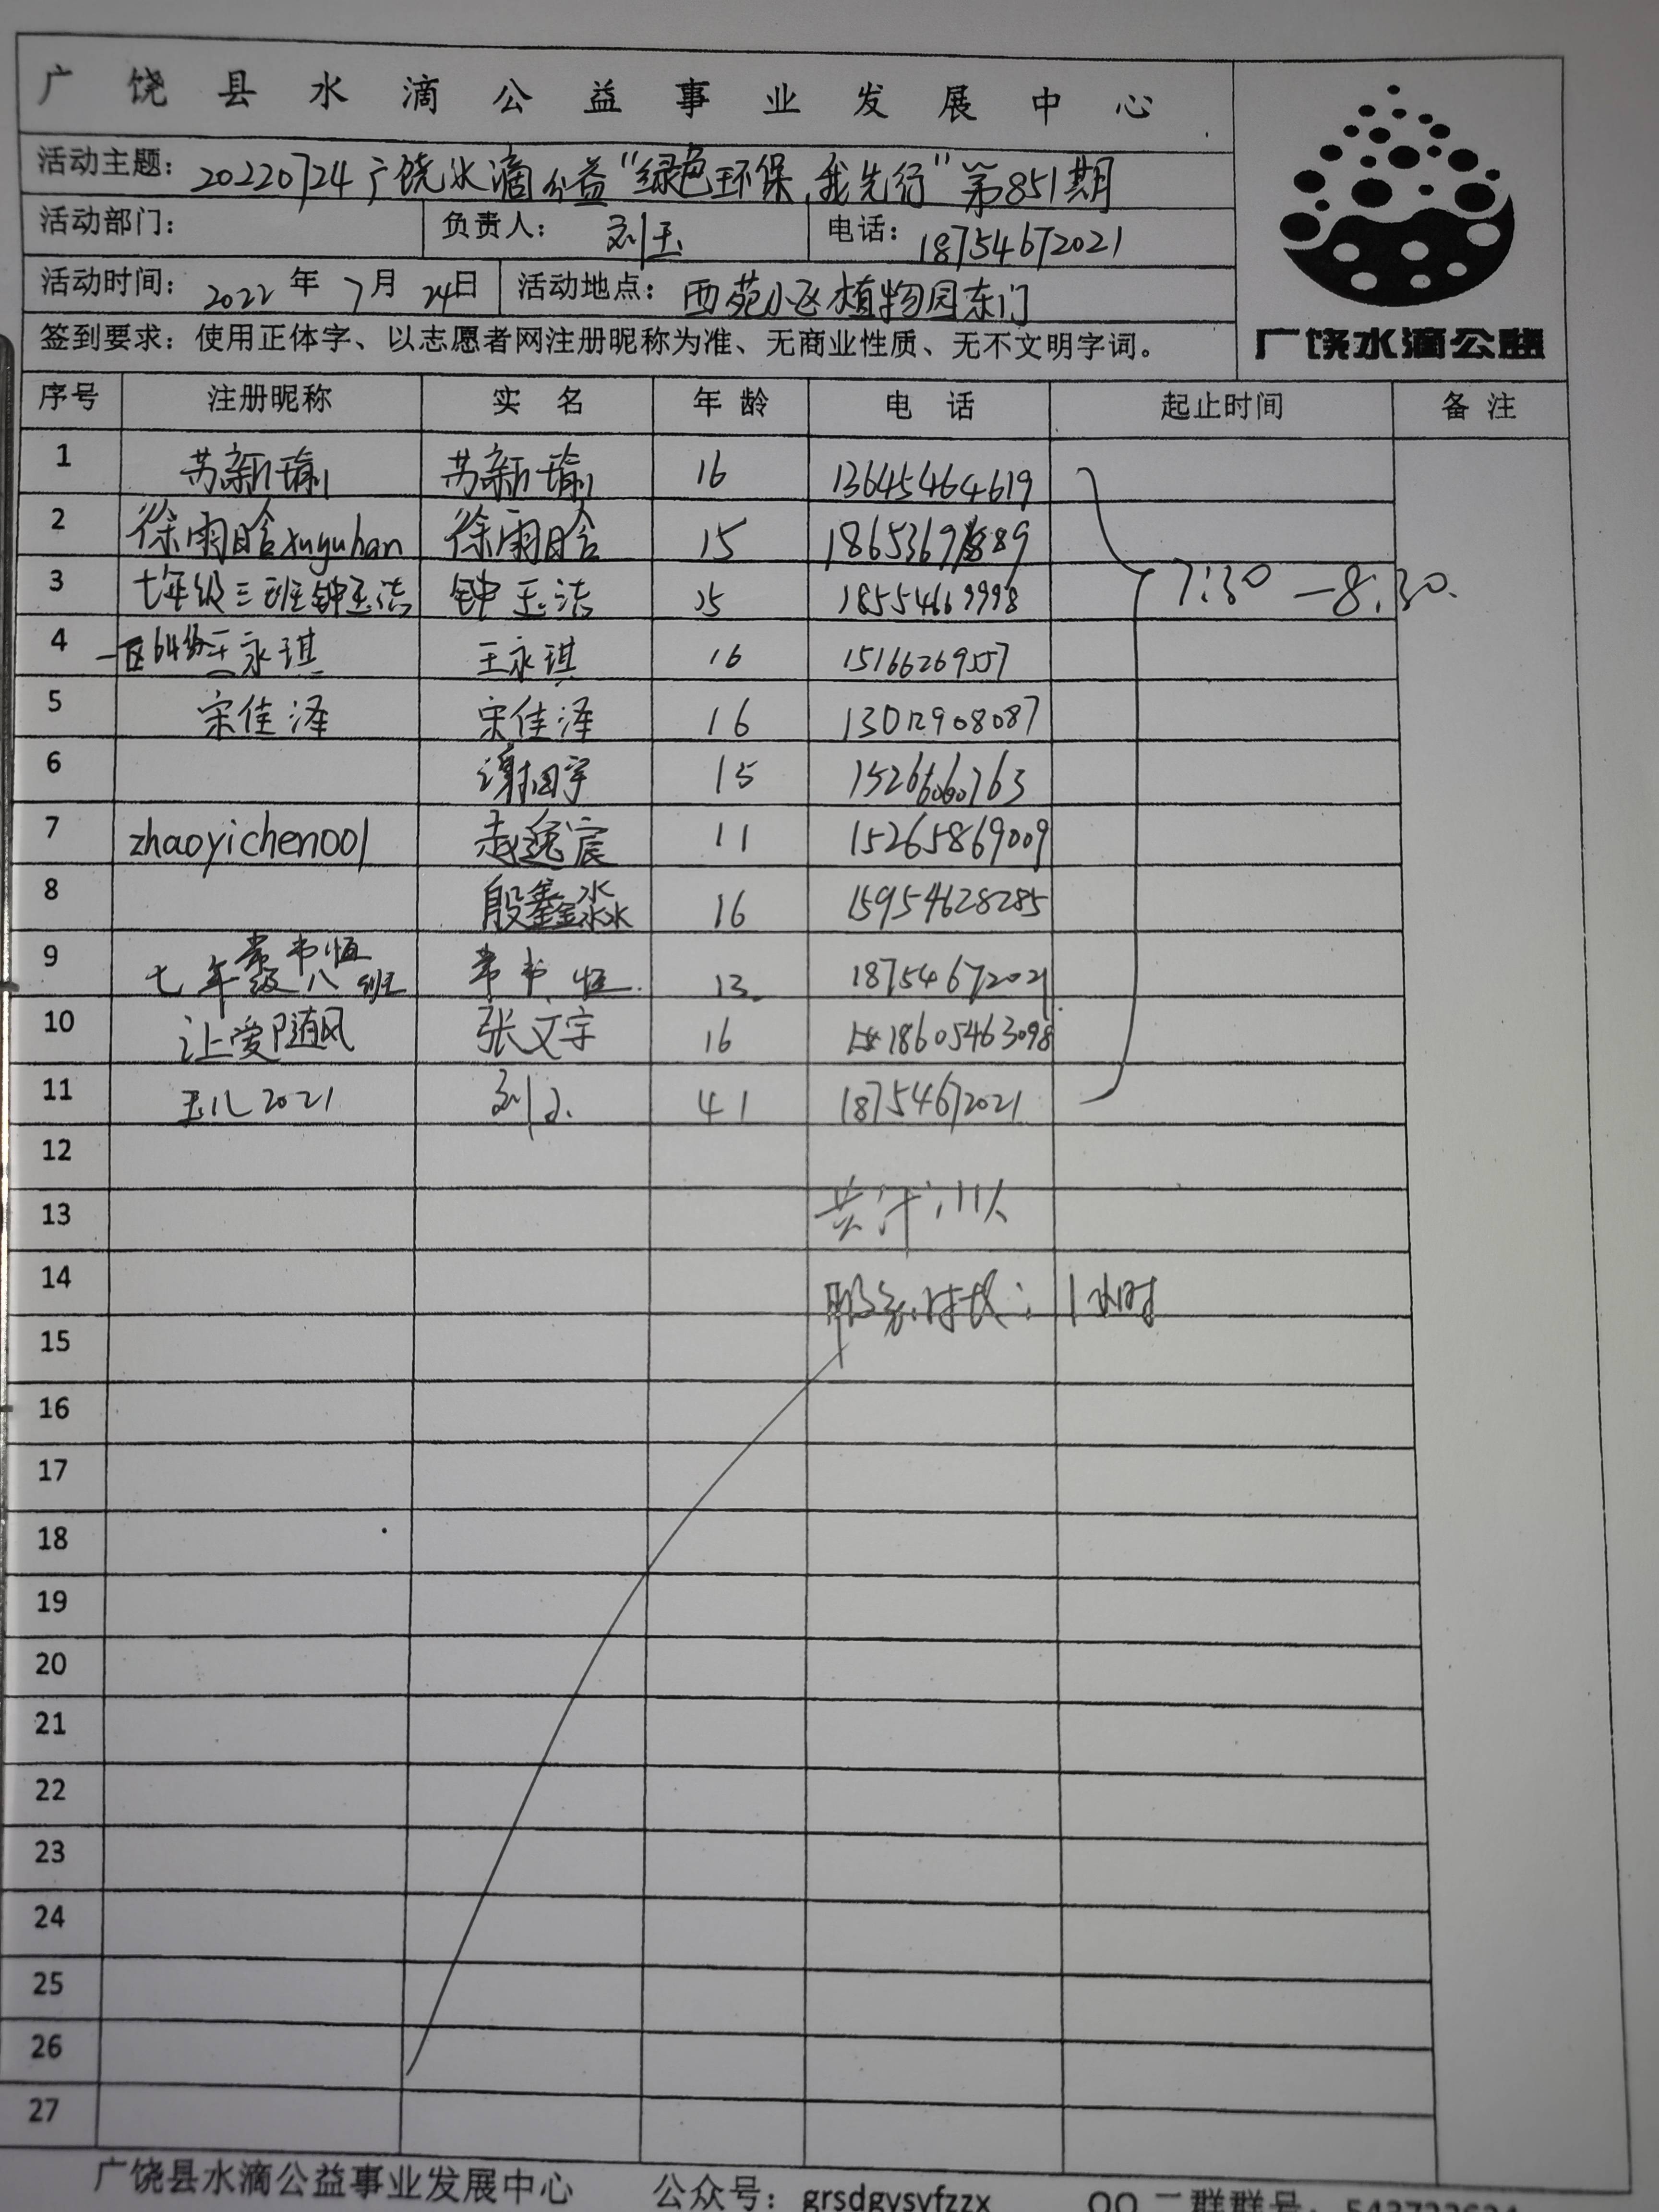 广饶县水滴公益事业发展中心
活动主题：20220724广饶水滴公益“绿色环保，我先行”第851期
活动部门： 负责人：刘玉 电话：18754672021
活动时间：2022年7月24日 活动地点：西苑小区植物园东门
签到要求：使用正体字、以志愿者网注册昵称为准、无商业性质、无不文明字词。
广饶水滴公益
序号 注册昵称 实 名 年 龄 电 话 起止时间 备 注
1 苏新瑜 苏新瑜 16 13645464619
2 徐雨晗xuyuhan 徐雨晗 15
7:30-8:30.
3 七年级三班钟玉洁 钟玉洁 15 18554669998
4 王永琪 王永琪 16 15166269557
5 宋佳泽 宋佳泽 16 13012908087
6 15
7 zhaoyichen001 赵逸宸 11 15265869009
8 殷鑫淼 16 15954628285
9 七年级八班 13 18754672021
10 让爱随风 张文宇 16 18605463098
11 玉儿2021 刘玉 41 18754672021
12
13 共计：11人
14 服务时长：1小时
15
16
17
18
19
20
21
22
23
24
25
26
27
广饶县水滴公益事业发展中心 公众号：grsdgysyfzzx QQ二群群号：